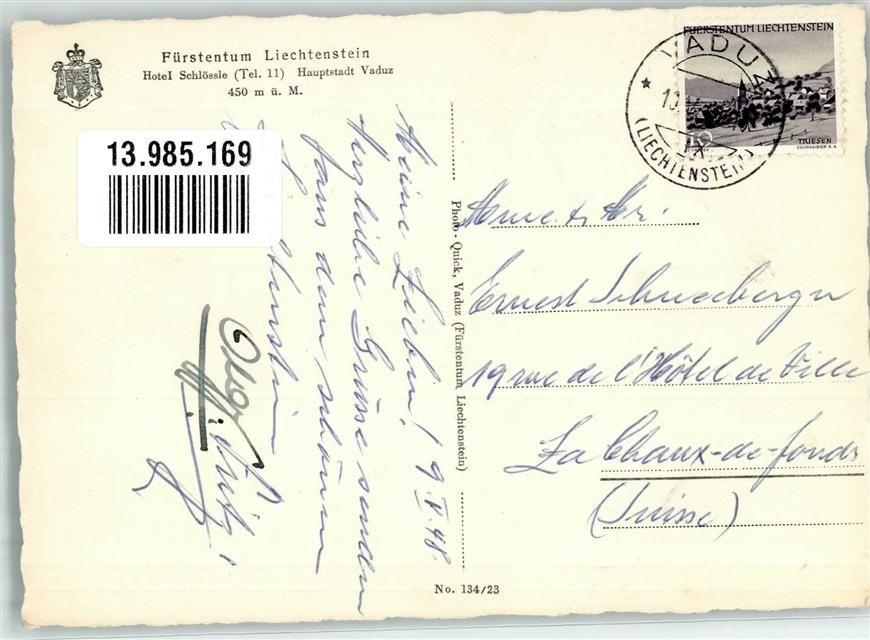 Fürstentum Liechtenstein
Hotel Schlössle (Tel. 11) Hauptstadt Vaduz
450 m ü. M.
13.985.169
FUERSTENTUM LIECHTENSTEIN
10
TRIESEN
COURVOISIER S.A.
VADUZ
(LIECHTENSTEIN)
Meine Lieben! 9.V.48.
Herzliche Grüsse senden
schönen
Photo - Quick, Vaduz (Fürstentum Liechtenstein)
Mme & Mr.
Ernest Schneeberger
19 rue de l'Hôtel de Ville
La Chaux-de-fonds
(Suisse)
No. 134/23